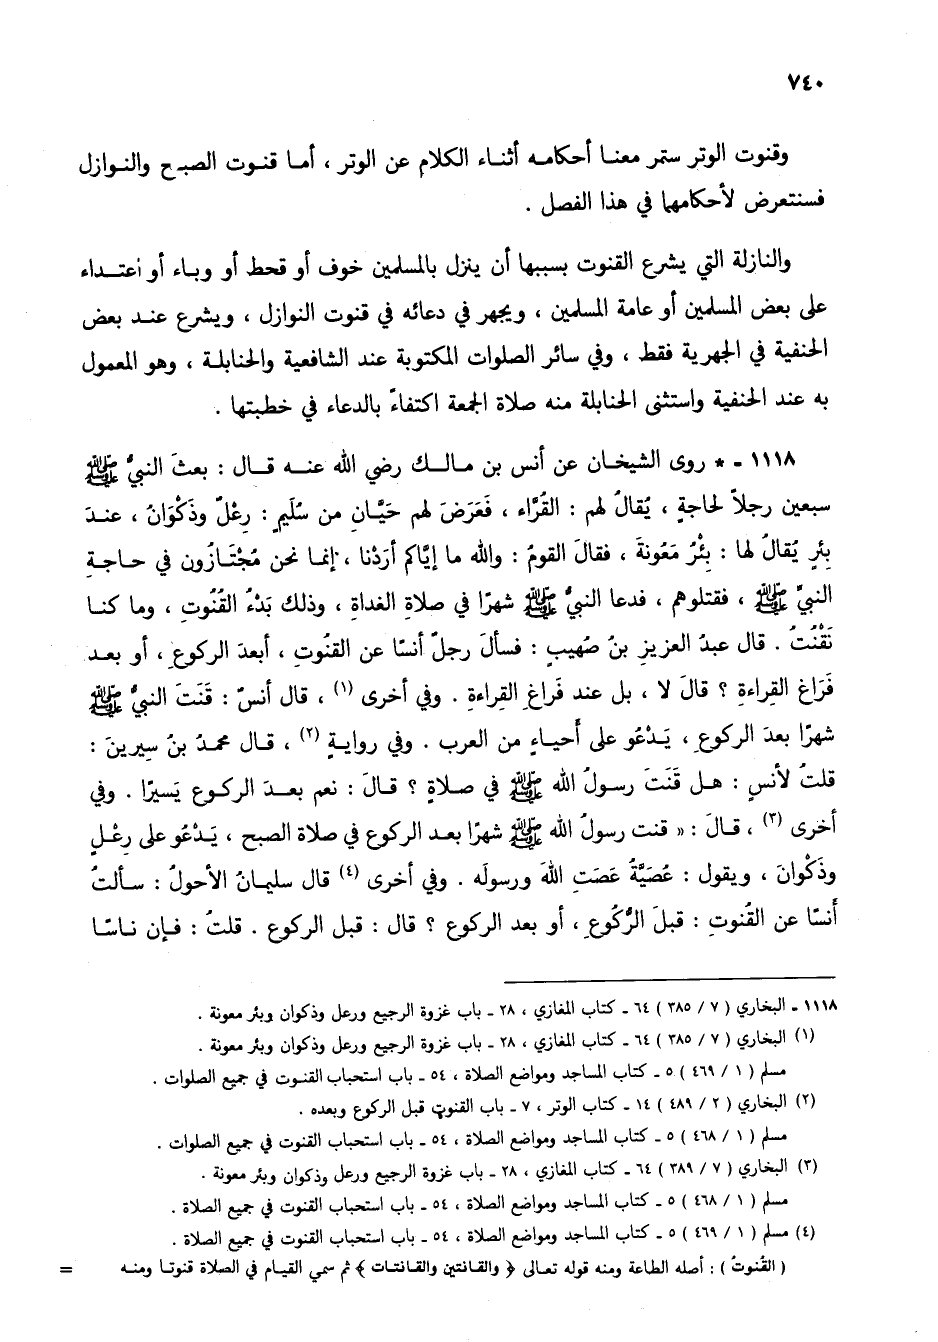 ٧٤٠
وقنوت الوتر ستمر معنا أحكامه أثناء الكلام عن الوتر ، أما قنوت الصبح والنوازل
فسنتعرض لأحكامهما في هذا الفصل .
والنازلة التي يشرع القنوت بسببها أن ينزل بالمسلمين خوف أو قحط أو وباء أو اعتداء
على بعض المسلمين أو عامة المسلمين ، ويجهر في دعائه في قنوت النوازل ، ويشرع عند بعض
الحنفية في الجهرية فقط ، وفي سائر الصلوات المكتوبة عند الشافعية والحنابلة ، وهو المعمول
به عند الحنفية واستثنى الحنابلة منه صلاة الجمعة اكتفاءً بالدعاء في خطبتها .
١١١٨ - * روى الشيخان عن أنس بن مالك رضي الله عنه قال : بعثَ النبيُّ ﷺ
سبعين رجلاً لحاجةٍ ، يُقالُ لهم : القُرَّاء ، فَعَرَضَ لهم حَيَّانِ من سُلَيمٍ : رِعْلٌ وذَكْوَانُ ، عندَ
بئرٍ يُقالُ لها : بِئْرُ مَعُونةَ ، فقالَ القومُ : والله ما إيَّاكم أرَدْنا ، إنما نحن مُجْتَازُون في حاجةِ
النبيِّ ﷺ ، فقتلوهم ، فدعا النبيُّ ﷺ شهرًا في صلاةِ الغداةِ ، وذلك بَدْءُ القُنُوتِ ، وما كنا
نَقْنُتُ . قال عبدُ العزيزِ بنُ صُهيبٍ : فسألَ رجلٌ أنسًا عن القنُوتِ ، أبعدَ الركوعِ ، أو بعد
فَرَاغِ القِراءةِ ؟ قالَ لا ، بل عند فَراغِ القِراءةِ . وفي أخرى (١) ، قال أنسٌ : قَنَتَ النبيُّ ﷺ
شهرًا بعدَ الركوعِ ، يَدْعُو على أحياءٍ من العرب . وفي روايةٍ (٢) ، قال محمدُ بنُ سِيرينَ :
قلتُ لأنسٍ : هل قَنَتَ رسولُ الله ﷺ في صلاةٍ ؟ قالَ : نعم بعدَ الركوع يَسيرًا . وفي
أخرى (٣) ، قالَ : « قنت رسولُ الله ﷺ شهرًا بعد الركوع في صلاة الصبح ، يَدْعُو على رِعْلٍ
وذَكْوانَ ، ويقول : عُصَيَّةُ عَصَتِ اللهَ ورسولَه . وفي أخرى (٤) قال سليمانُ الأحولُ : سألتُ
أنسًا عن القُنوتِ : قبلَ الرُّكُوعِ ، أو بعد الركوع ؟ قال : قبل الركوع . قلتُ : فإن ناسًا
١١١٨ - البخاري ( ٧ / ٣٨٥ ) ٦٤ - كتاب المغازي ، ٢٨ - باب غزوة الرجيع ورعل وذكوان وبئر معونة .
(١) البخاري ( ٧ / ٣٨٥ ) ٦٤ - كتاب المغازي ، ٢٨ - باب غزوة الرجيع ورعل وذكوان وبئر معونة .
مسلم ( ١ / ٤٦٩ ) ٥ - كتاب المساجد ومواضع الصلاة ، ٥٤ - باب استحباب القنوت في جميع الصلوات .
(٢) البخاري ( ٢ / ٤٨٩ ) ١٤ - كتاب الوتر ، ٧ - باب القنوت قبل الركوع وبعده .
مسلم ( ١ / ٤٦٨ ) ٥ - كتاب المساجد ومواضع الصلاة ، ٥٤ - باب استحباب القنوت في جميع الصلوات .
(٣) البخاري ( ٧ / ٣٨٩ ) ٦٤ - كتاب المغازي ، ٢٨ - باب غزوة الرجيع ورعل وذكوان وبئر معونة .
مسلم ( ١ / ٤٦٨ ) ٥ - كتاب المساجد ومواضع الصلاة ، ٥٤ - باب استحباب القنوت في جميع الصلاة .
(٤) مسلم ( ١ / ٤٦٩ ) ٥ - كتاب المساجد ومواضع الصلاة ، ٥٤ - باب استحباب القنوت في جميع الصلاة .
( القُنوتُ ) : أصله الطاعة ومنه قوله تعالى ﴿ والقانتين والقانتات ﴾ ثم سمي القيام في الصلاة قنوتا ومنه =